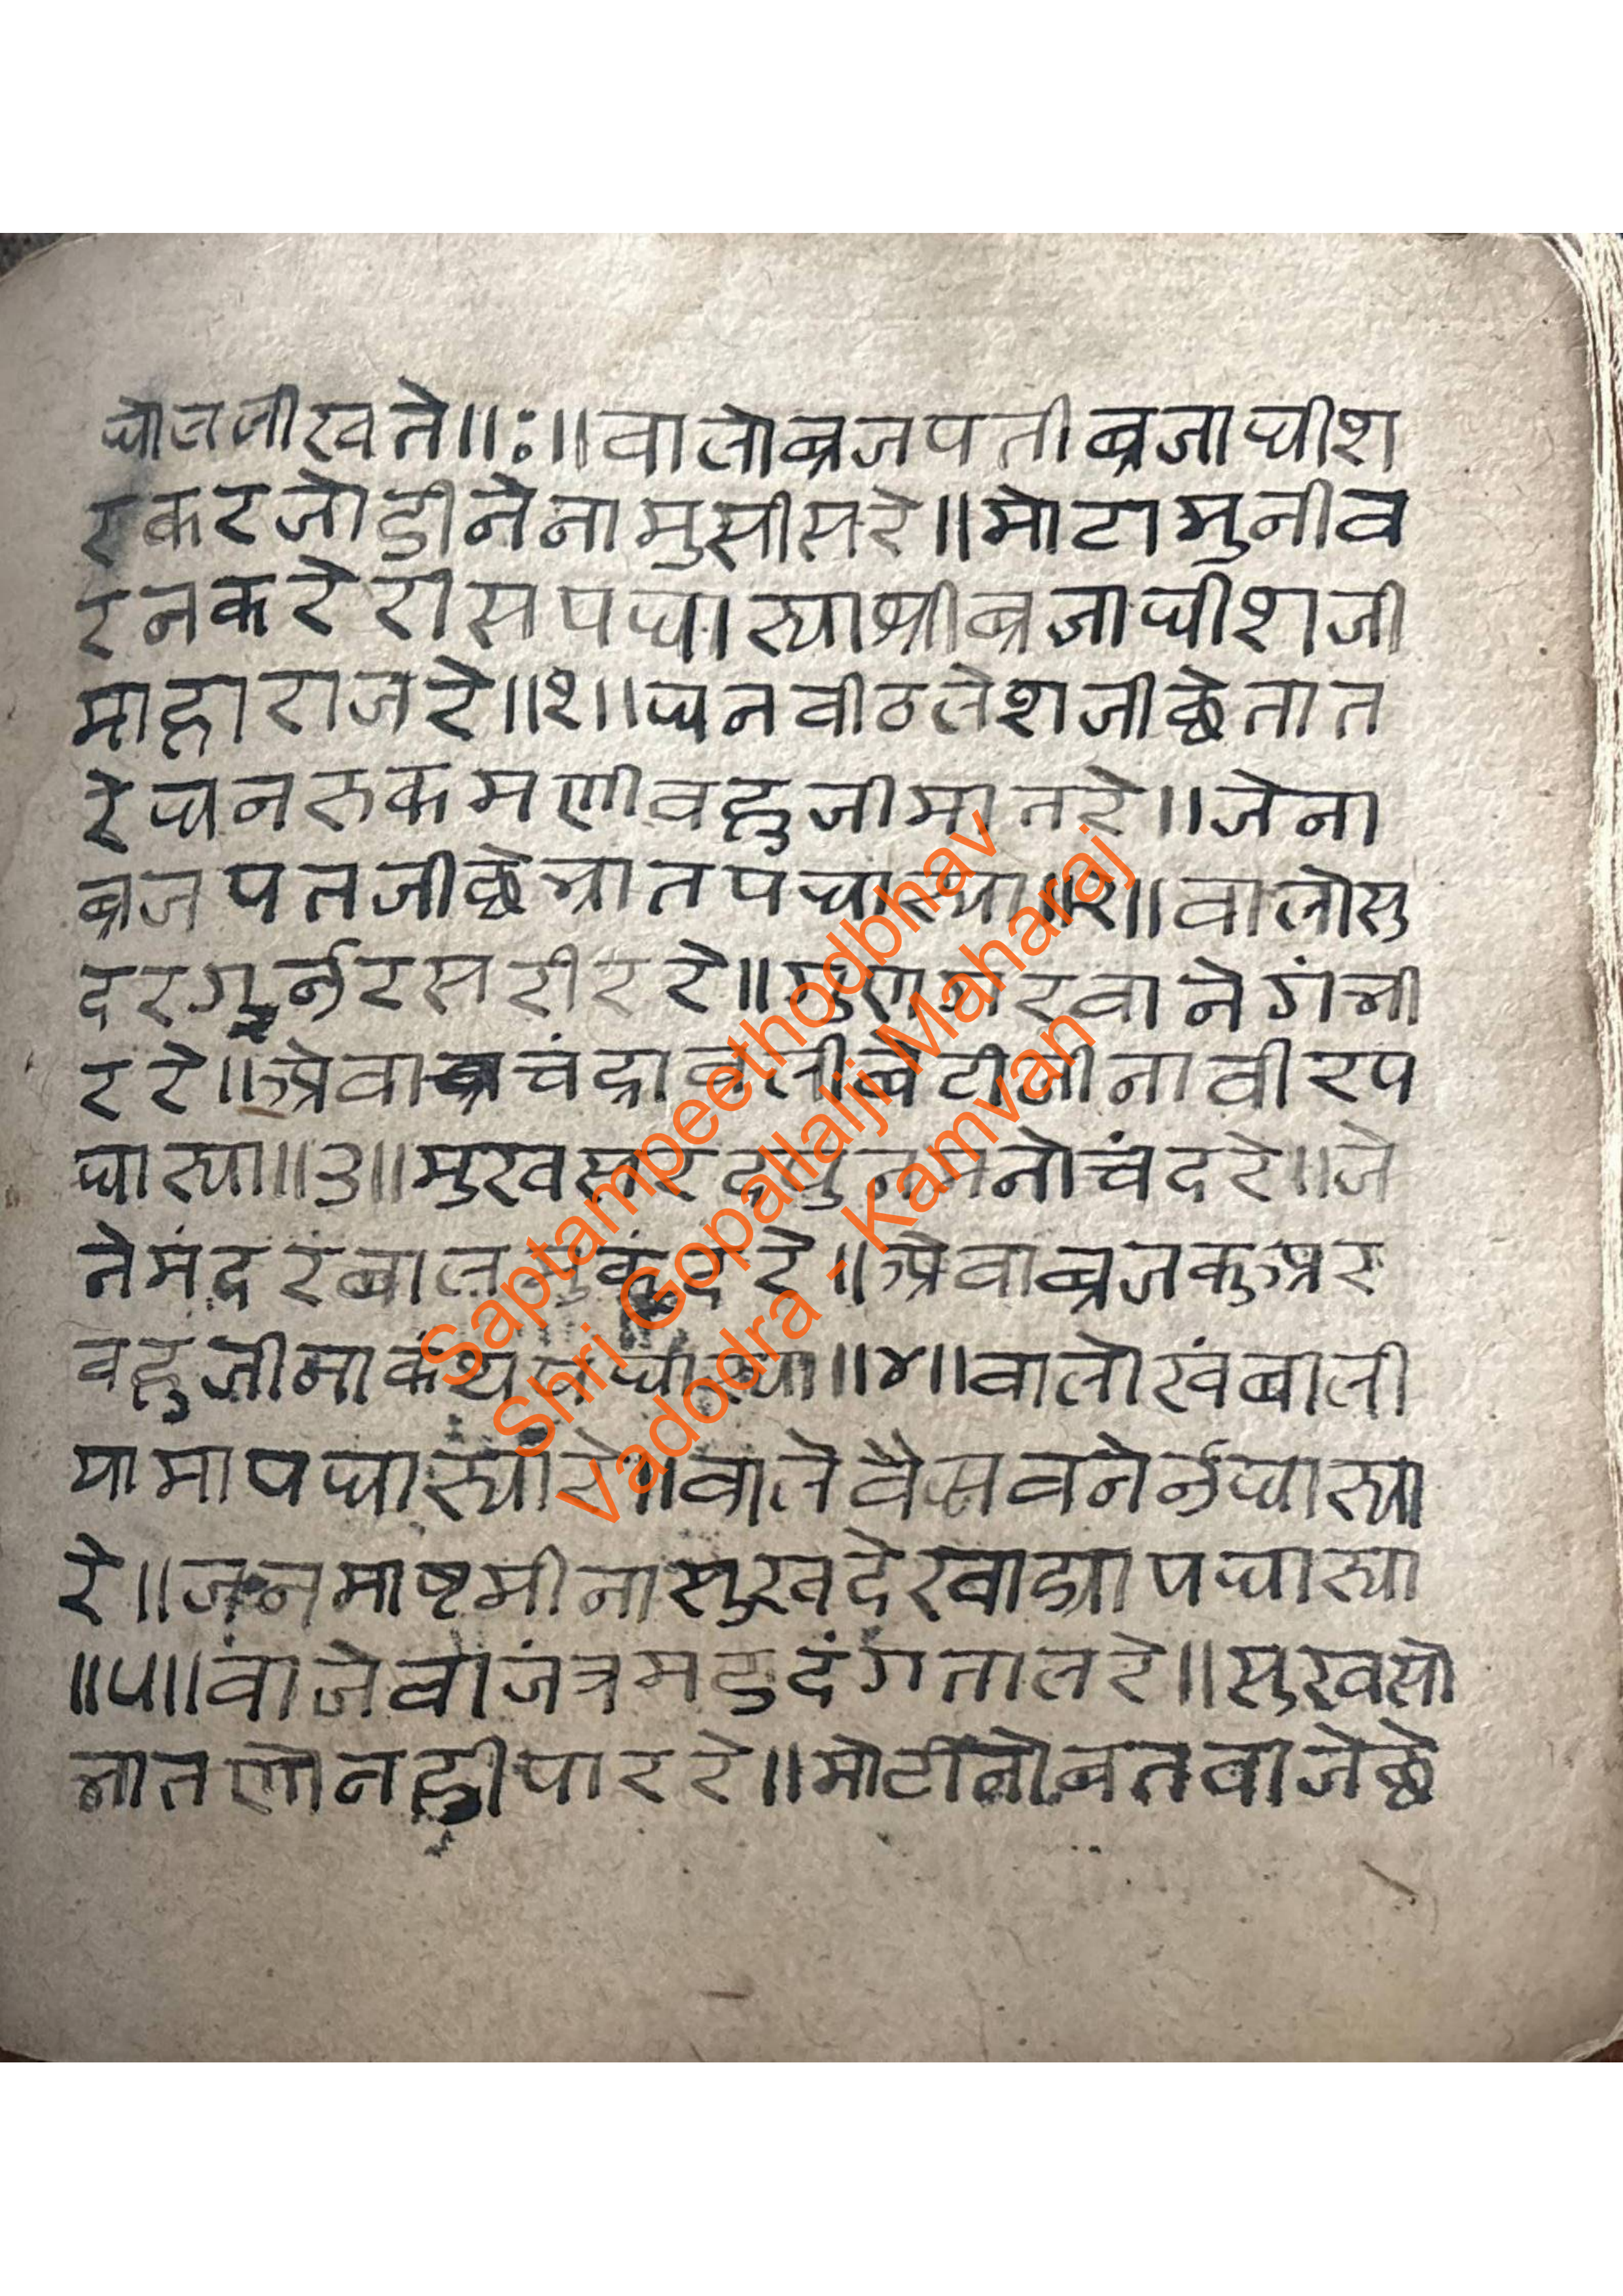 घोल लीखते॥ः॥वालो ब्रजपती ब्रजाधीश
रे कर जोडीने नामु सीस रे॥मोटा मुनीव
र न करे रीस पधास्या श्री ब्रजाधीशजी
माहाराज रे॥१॥धन वीठलेशजी छे तात
रे धन रुकमणी वहुजी मात रे॥जेना
ब्रजपतजी छे भ्रात पधास्या॥२॥वालो सु
दर सरीर रे॥गुण गरवा ने गंभी
र रे॥अेवा चंद्रावली बेटीजीना वीर प
धास्या॥३॥मुख सरद पुनमनो चंद रे॥जे
ने मंदर बाल मुकुंद रे॥अेवा ब्रजकुअर
वहुजीमा कंथ पधास्या॥४॥वालो खंबाली
यामा पधास्या रे॥वाले वैसवने
रे॥जनमाष्टमीना सुख देखाड्या पधास्या
॥५॥वाजे वाजंत्र मदुदंग ताल रे॥सुख सो
भा तणो नही पार रे॥मोटी नोबत वाजे छे
Saptampeethodbhav
Shri Gopallalji Maharaj
Vadodra - Kamvan